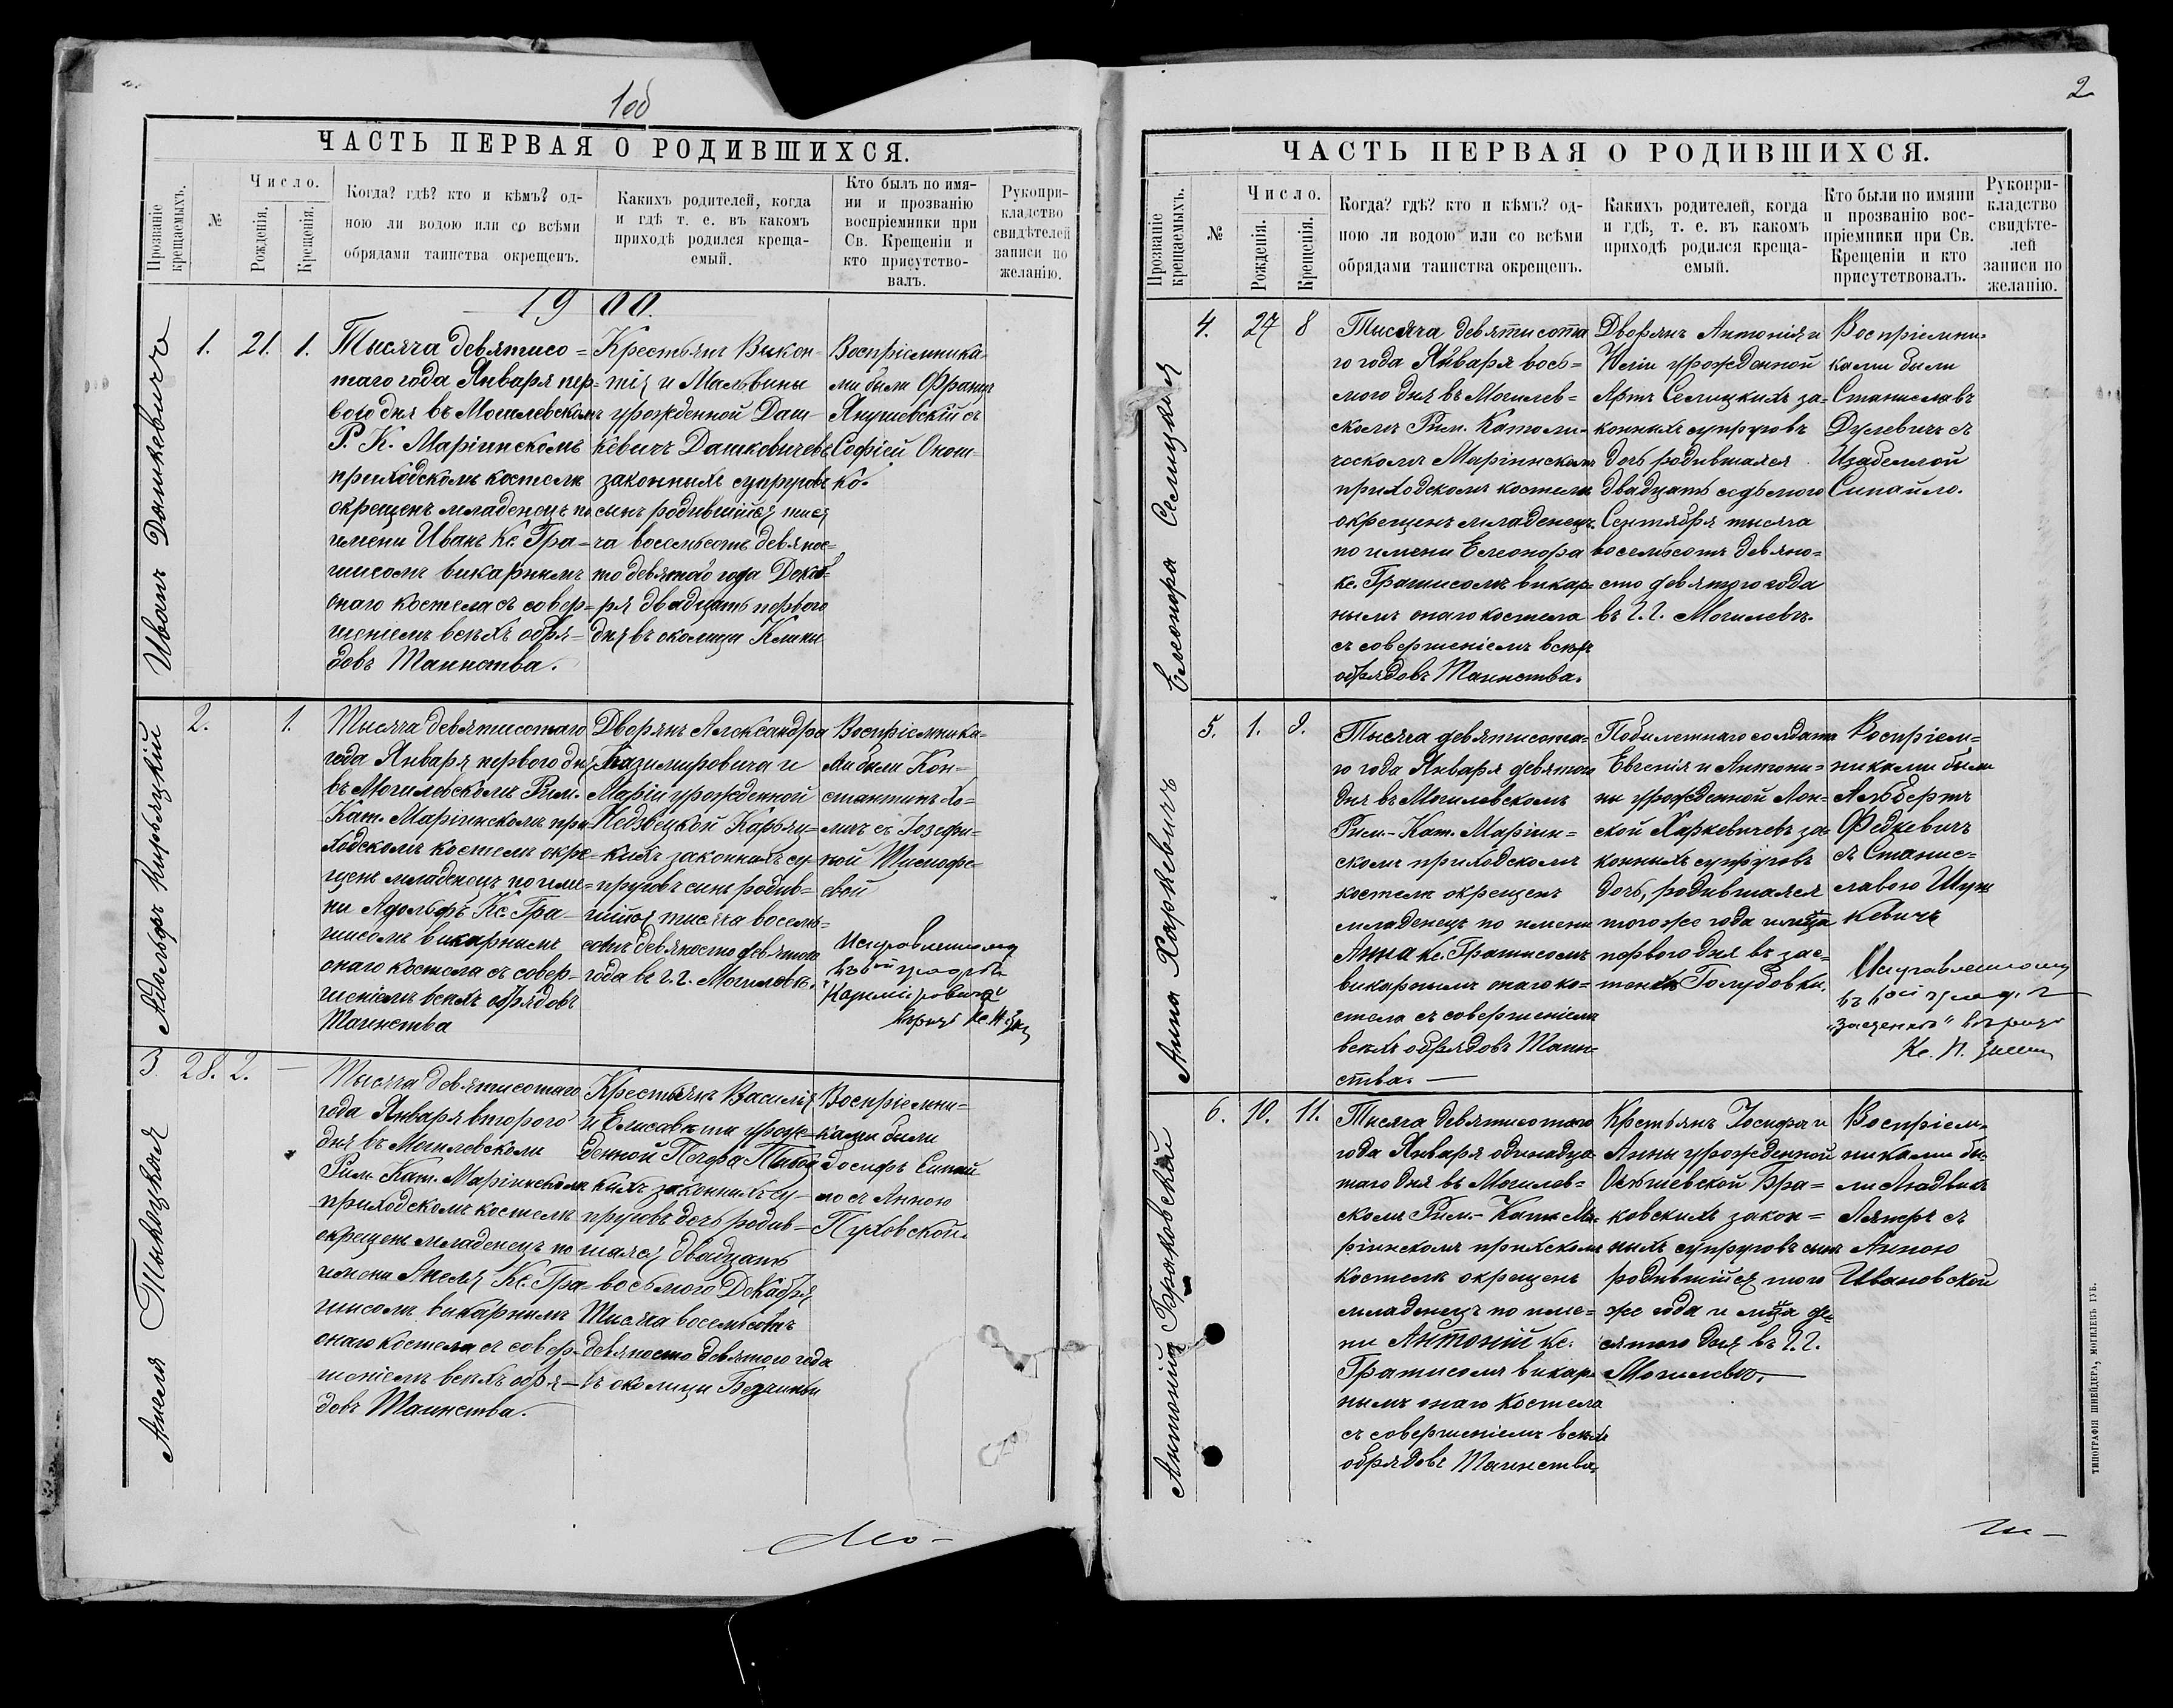 1об
ЧАСТЬ ПЕРВАЯ О РОДИВШИХСЯ.
Прозваніе крещаемыхъ.
№
Число.
Рожденія.
Крещенія.
Когда? гдѣ? кто и кѣмъ? од-
ною ли водою или со всѣми
обрядами таинства окрещенъ.
Какихъ родителей, когда
и гдѣ т. е. въ какомъ
приходѣ родился креща-
емый.
Кто былъ по имя-
ни и прозванію
воспріемники при
Св. Крещеніи и
кто присутство-
валъ.
Рукопри-
кладство
свидѣтелей
записи по
желанію.
1900.
Иванъ Дашкевичъ
1. 21. 1.
Тысяча девятисо=
таго года Января пер=
вого дня въ Могилевскомъ
Р. К. Маріинскомъ
приходскомъ костелѣ
окрещенъ младенецъ по
имени Иванъ Кс. Гра=
шисомъ викарнымъ
онаго костела съ совер=
шеніемъ всѣхъ обря=
довъ Таинства.
Крестьянъ Викен-
тія и Мальвины
урожденной Даш-
кевичъ Дашкевичевъ
законныхъ супруговъ
сынъ родившійся тися
ча восемьсотъ девянос=
то девятаго года Декаб-
ря двадцать перваго
дня въ околица
Воспріемника-
ми были Францъ
Янушевскій съ
Софіей Онош-
ко.
Адольфъ Кирьяцкій
2. 1.
Тысяча девятисотаго
года Января перваго дня
въ Могилевскомъ Рим.
Кат. Маріинскомъ при-
ходскомъ костелѣ окре=
щенъ младенецъ по име=
ни Адольфъ Кс. Гра-
шисомъ викарнымъ
онаго костела съ совер=
шеніемъ всѣхъ обрядовъ
Таинства
Дворянъ Александра
Казимировича и
Маріи урожденной
Недзвецкой Карьяц-
кихъ законныхъ су-
пруговъ сынъ родив=
шійся тысяча восемь-
сотъ девяносто девятого
года въ г. г. Могилевѣ.
Воспріемника=
ми были Кон=
стантинъ
съ Іозефи=
ной
Исправленному
Кс.
Анеля Тывацкая
3 28. 2. —
Тысяча девятисотаго
года Января второго
дня въ Могилевскомъ
Рим. Кат. Маріинскомъ
приходскомъ костелѣ
окрещенъ младенецъ по
имени Анеля Кс. Гра-
шисомъ викарнымъ
онаго костела съ совер-
шеніемъ всѣхъ обря-
довъ Таинства.
Крестьянъ Василія
и Елисаветы урож-
денной
кихъ законныхъ су-
пруговъ дочь родив=
шаяся двадцать
восьмого Декабря
Тысяча восемьсотъ
девяносто девятого года
въ околицы
Воспріемни=
ками были
Іосифъ Сипай
ло съ Анною
Пуховской.
2
ЧАСТЬ ПЕРВАЯ О РОДИВШИХСЯ.
Прозваніе крещаемыхъ.
№
Число.
Рожденія.
Крещенія.
Когда? гдѣ? кто и кѣмъ? од-
ною ли водою или со всѣми
обрядами таинства окрещенъ.
Какихъ родителей, когда
и гдѣ, т. е. въ какомъ
приходѣ родился креща-
емый.
Кто были по имяни
и прозванію вос-
пріемники при Св.
Крещеніи и кто
присутствовалъ.
Рукопри-
кладство
свидѣте-
лей
записи по
желанію.
Елеонора Селицкая
4. 27 8
Тысяча девятисота
го года Января вось=
мого дня въ Могилев=
скомъ Рим. Католи-
ческомъ Маріинскомъ
приходскомъ костелѣ
окрещенъ младенецъ
по имени Елеонора
кс. Грашисомъ викар-
нымъ онаго костела
съ совершеніемъ всѣхъ
обрядовъ Таинства.
Дворянъ Антонія и
Юліи урожденной
Селицкихъ за-
конныхъ супруговъ
дочь родившаяся
двадцать седьмого
Сентября тысяча
восемьсотъ девяно=
сто девятого года
въ г. г. Могилевѣ.
Воспріемни=
ками были
Станиславъ
Дулевичъ съ
Изабеллой
Сипайло.
Анна Харкевичъ
5. 1. 9.
Тысяча девятисота=
го года Января девятого
дня въ Могилевскомъ
Рим.- Кат. Маріин=
скомъ приходскомъ
костелѣ окрещенъ
младенецъ по имени
Анна Кс. Грашисомъ
викарнымъ онаго ко=
стела съ совершеніемъ
всѣхъ обрядовъ Таин-
ства. —
Побилетнаго солдата
Евгенія и Антони=
ны урожденной Лон-
ской Харкевичевъ за-
конныхъ супруговъ
дочь, родившаяся
того же года и мца
перваго дня въ зас=
Голубовки.
Воспріем=
никами были
Альбертъ
Федкевичъ
съ Станис=
лавою Шун
кевичъ
Исправленному
Кс.
Антоній Браковскій
6. 10. 11.
Тысяча девятисотаго
года Января одинадца
таго дня въ Могилев=
скомъ Рим.- Кат. Ма-
ріинскомъ прихскомъ
костелѣ окрещенъ
младенецъ по име=
ни Антоній кс.
Грашисомъ викар-
нымъ онаго костела
съ совершеніемъ всѣхъ
обрядовъ Таинства.
Крстьянъ Іосифа и
Анны урожденной
Бра=
ковскихъ закон=
ныхъ супруговъ сынъ
родившійся того
же года и мца де=
сятого дня въ г. г.
Могилевѣ. —
Воспріем-
никами бы-
ли Людвикъ
съ
Анною
Ивановской
ТИПОГРАФІЯ ШНЕЙДЕРА, МОГИЛЕВЪ ГУБ.